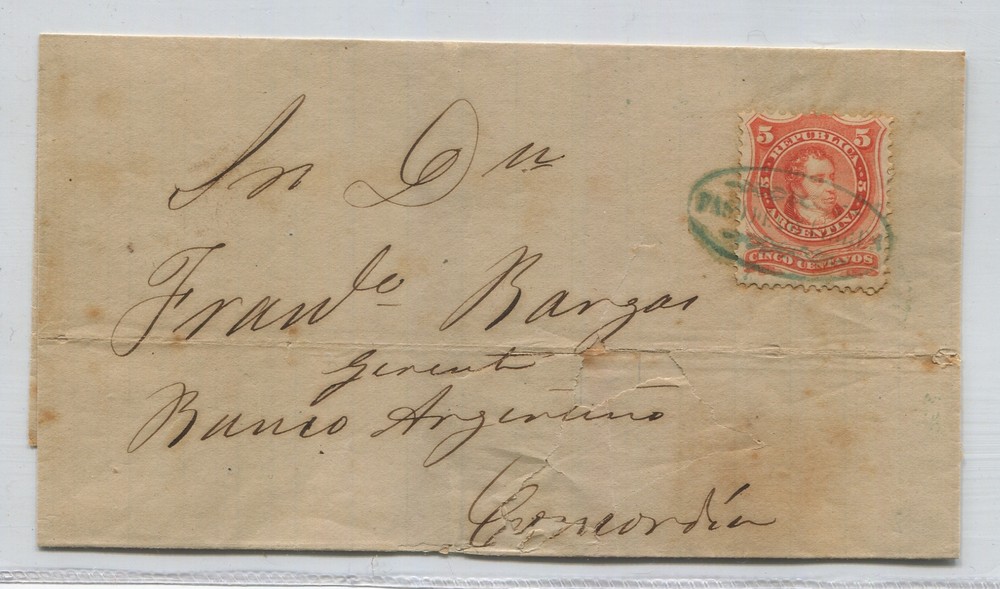 Sr Dn
Frando Bargas
gerente
Banco Argentino
Concordia
5 5
REPUBLICA
5 5
ARGENTINA
CINCO CENTAVOS